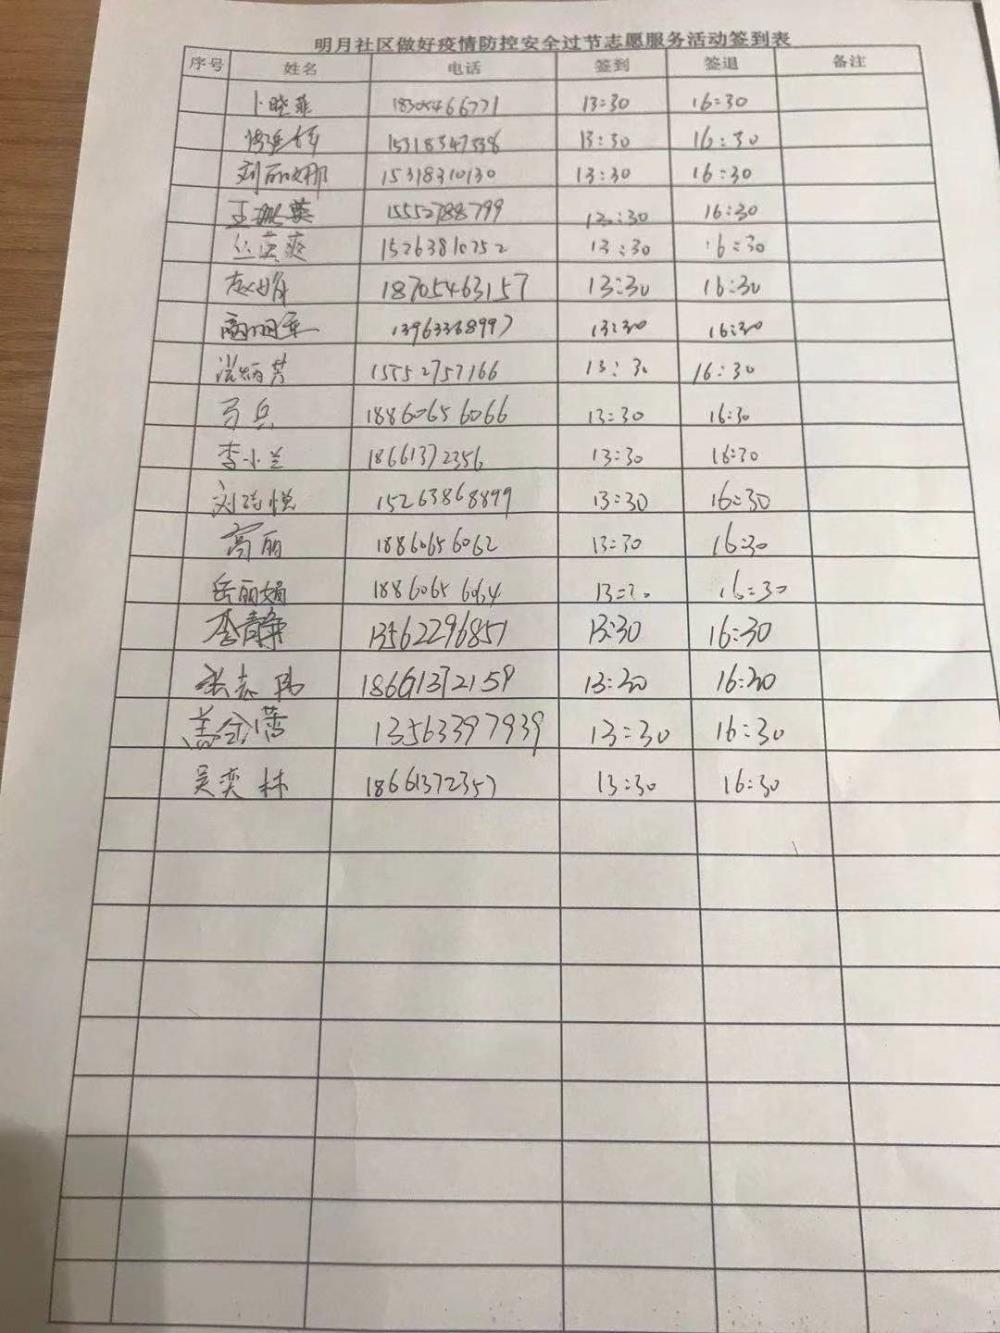 明月社区做好疫情防控安全过节志愿服务活动签到表
序号 姓名 电话 签到 签退 备注
卜晓菲 18305466771 13:30 16:30
15318347558 13:30 16:30
刘丽娜 15318310130 13:30 16:30
15552788799 16:30
丛英爽 15263810252 13:30 16:30
18705463157 13:30 16:30
13963368997 13:30 16:30
张炳芳 15552757166 13:30 16:30
弓兵 18860656066 13:30 16:30
李小兰 18661372356 13:30 16:30
15263868899 13:30 16:30
高丽 18860656062 13:30 16:30
岳丽娟 18860656064 13:30 16:30
李静 13562296851 13:30 16:30
张志伟 18661372159 13:30 16:30
盖金 13563397939 13:30 16:30
吴奕林 18661372357 13:30 16:30